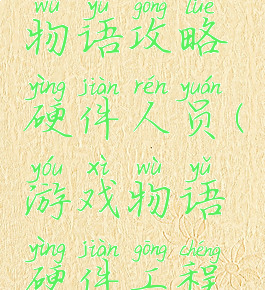 wù yǔ gōng lüè
物语攻略
yìng jiàn rén yuán
硬件人员(
yóu xì wù yǔ
游戏物语
yìng jiàn gōng chéng
硬件工程